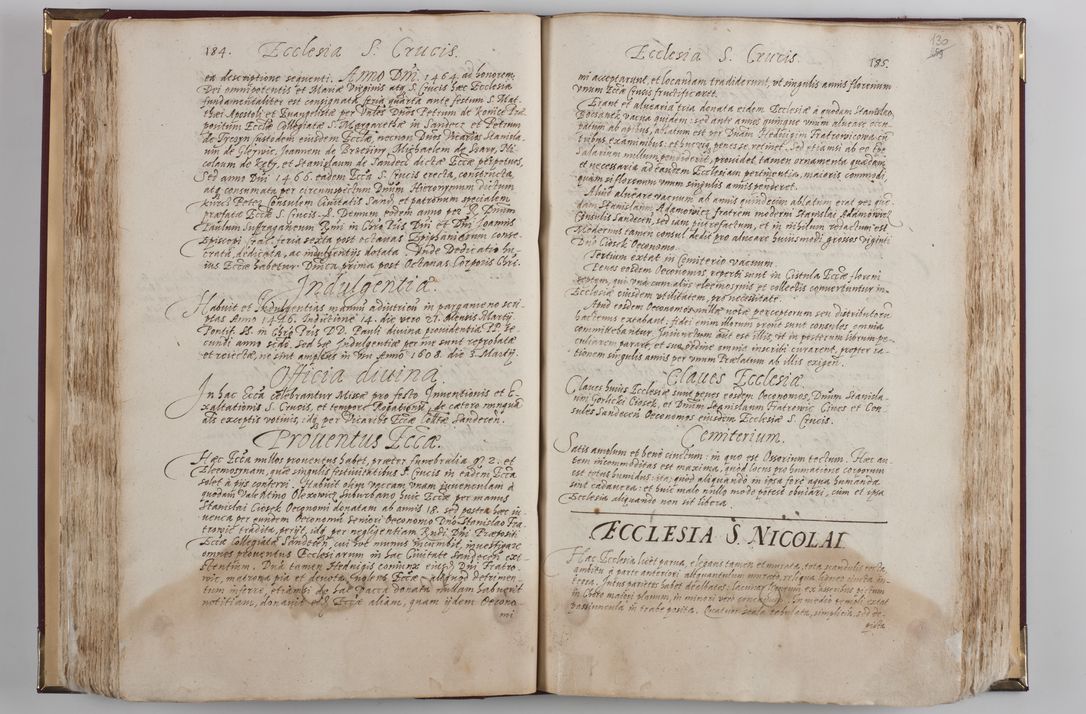 184. Ecclesia S. Crucis.
ea descriptione sequenti. Anno Dni 1464. ad honorem
Dei omnipotentis et Mariæ Virginis atq S. Crucis hæc Ecclesia
fundamentaliter est consignata feria quarta ante festum S. Mat
thæi Apostoli et Evangelistæ per Dnos Petrum de Præ
positum Ecclæ Collegiatæ S. Margarethæ in Sandecz et Petrum
de custodem eiusdem Ecclæ, necnon Dnos Vicarios Stanisla
um de Joannem de Michaelem de Ni
colaum de Kęty, et Stanislaum de Sandecz dictæ Eccæ perpetuos,
Sed anno Dni 1466. eadem Ecca S. Crucis erecta, constructa,
atq consumata per circumspectum Dnum Hieronymum dictum
Peter Consulem Civitatis Sand. et patronum specialem
præfatæ Eccæ S. Crucis. Demum eodem anno per R. Dnum
Paulum Suffraganeum Rmi in Chro Pris Dni et Dni Joannis
Episcopi Crac. feria sexta post octavas Epiphaniarum conse
crata, dedicata, ac indulgentijs dotata. Unde Dedicatio hu
ius Eccæ habetur Dnica prima post Octavas Corporis Chri.
Indulgentiæ
Habuit et Indulgentias manu in pargameno scri
ptas Anno 1446. Indictione 14. die vero 27. Mensis Martij
Pontif. SS. in Chro Pris DD. Pauli divina providentia PP. se
cundi anno scdo. Sed hæ Indulgentiæ per me sunt reprobatæ
et reiectæ, ne sint amplius in usu Anno 1608. die 3 Martij.
Officia divina
In hac Ecca celebrantur Missæ pro festo Inventionis et E
xaltationis S. Crucis, et tempore Rogationum, de cætero nunquam
als exceptis votivis, idq per Vicarios Eccæ Collatæ Sandecen.
Proventus Eccæ.
Hæc Ecca nullos proventus habet, præter funebralia gr 2. et
Eleemosynam, quæ singulis festivitatibus S. Crucis in eadem Ecca
solet à pijs conferri. Habuit olim vaccam unam iuvenculam à
quodam Valentino Olexowicz Suburbano huic Eccæ per manus
Stanislai Ciosek Oeconomi donatam ab annis 18. sed postea hæc iu
venca per eundem Oeconomum seniori Oeconomo Dno Stanislao Fra
trowic tradita, perijt, idq per negligentiam Rndi Dni Præpositi
Eccæ Collegiatæ Sandecen, cui hoc munus incumbit, investigare
omnes proventus Ecclesiarum in hac Civitate Sandecen exi
stentium. Dna tamen Hedvigis coniunx eiusd. Dni Fratro
wic, matrona pia et devota, nolens Eccæ aliquod detrimen
tum inferre, etiamsi de hac vacca donata nullam habuerit
notitiam, donavit Eccæ aliam, quam ijdem Oecono
mi
Ecclesia S. Crucis. 185.
130
mi acceptarunt, et locandam tradiderunt, ut singulis annis florenum
unum Eccæ Crucis fructificaret.
Erant et alvearia tria donata eidem Ecclesiæ à quodam Stanislao
vacua quidem: sed ante annos quinque unum alveare occu
patum ab apibus, ablatum est per Dnam Hedvigim Fratrowicowa cum
tribus examinibus: et hucusq penes se retinet. Sed etiamsi ab eo
Salarium nullum penderet, providet tamen ornamenta quædam
et necessaria ad eandem Ecclesiam pertinentia, maioris commodi,
quàm si florenum unum singulis annis penderet.
Aliud alveare vacuum ab annis quindecim ablatum erat per quen
dam Stanislaum Adamowicz fratrem moderni Stanislai Adamowicz
Consulis Sandecen, sed iam putrefactum, et in nihilum redactum est.
Modernus tamen consul dedit pro alveare huiusmodi, grossos viginti
Dno Ciosek Oeconomo.
Tertium extat in Cœmiterio vacuum.
Penes eosdem Oeconomos reperti sunt in Cistula Eccæ floreni
septem, qui una cum alijs eleemosynis et collectis convertuntur in
Ecclesiæ eiusdem utilitatem, pro necessitate.
Apud eosdem Oeconomos nullæ notæ perceptorum seu distributorum
hactenus extabant, fidei enim illorum prout sunt consules omnia
committebantur. Iniunctum aut est illis, ut in posterum librum pe
culiarem parent, et suo ordine omnia inscribi curarent, propter ra
tionem singulis annis per unum Prælatum ab illis exigen.
Claves Ecclesiæ.
Claves huius Ecclesiæ sunt penes eosdem Oeconomos, Dnum Stanisla
um Gorlicki Ciosek, et Dnum Stanislaum Fratrowic, Cives et Con
sules Sandecen Oeconomos eiusdem Ecclesiæ S. Crucis.
Cemiterium.
Satis amplum et benè cinctum: in quo est Ossorium tectum. Hæc au
tem incommoditas est maxima, quòd locus pro humatione corporum
est totus humidus: ita; quòd aliquando in ipsa ferè aqua humanda
sunt cadavera: et huic malo nullo modo potest obviari, cum et ipsa
Ecclesia aliquando non sit libera.
ECCLESIA S. NICOLAI
Hæc Ecclesia licèt parva, elegans tamen et murata, tota scandulis tecta,
ambitu à parte anteriori aliquantulum murato, reliqua ligneo cincta, in
tecta. Intus parietes habet dealbatos: lacunar ligneum ex asseribus pictum
in Choro maiori planum, in minori verò In medio templi extat
passiuncula in trabe posita. Quatuor simplicia, sed de
picta